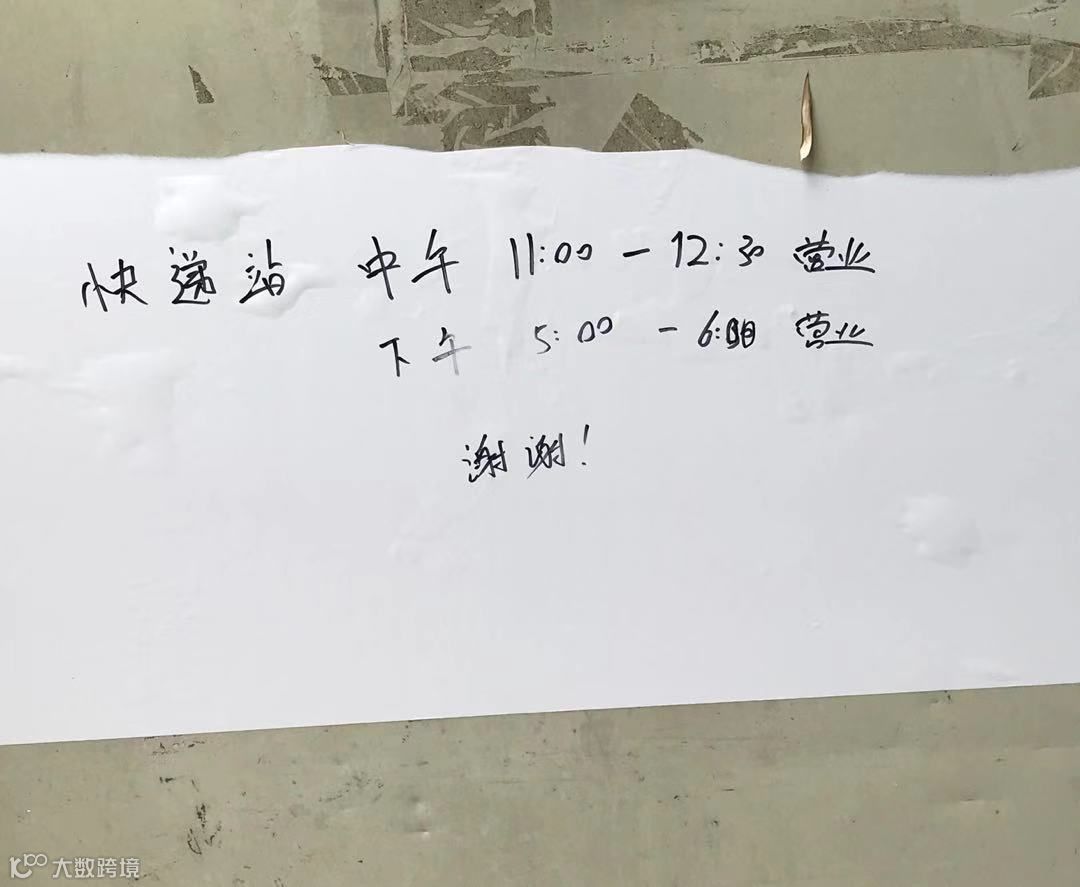 快递站 中午 11:00 - 12:30 营业
下午 5:00 - 6:00 营业
谢谢!
大数跨境